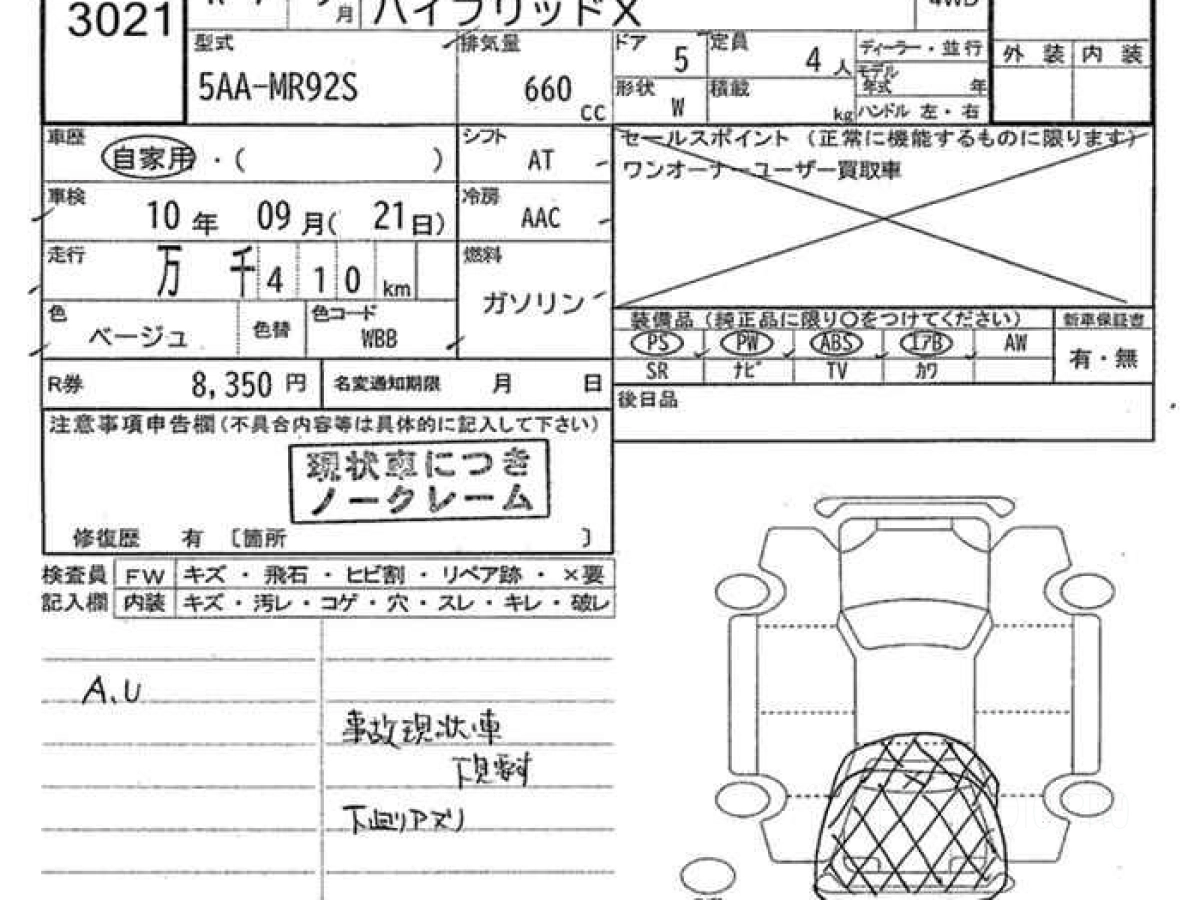 3021
月
ハイブリッドX
4WD
型式
5AA-MR92S
排気量
660
cc
ドア
5
定員
4
人
形状
W
積載
kg
ディーラー・並行
モデル年式
年
ハンドル 左・右
外装
内装
車歴
自家用・( )
シフト
AT
セールスポイント (正常に機能するものに限ります)
ワンオーナーユーザー買取車
車検
10年 09月( 21日)
冷房
AAC
走行
万 千 4 1 0 km
燃料
ガソリン
色
ベージュ
色替
色コード
WBB
装備品(純正品に限り○をつけてください)
新車保証書
PS PW ABS エアB AW
SR ナビ TV カワ
有・無
R券
8,350 円
名変通知期限
月 日
後日品
注意事項申告欄(不具合内容等は具体的に記入して下さい)
現状車につき
ノークレーム
修復歴 有 〔箇所 〕
検査員
記入欄
FW キズ・飛石・ヒビ割・リペア跡・×要
内装 キズ・汚レ・コゲ・穴・スレ・キレ・破レ
A、U
事故現状車
下見要す
下回りアズリ